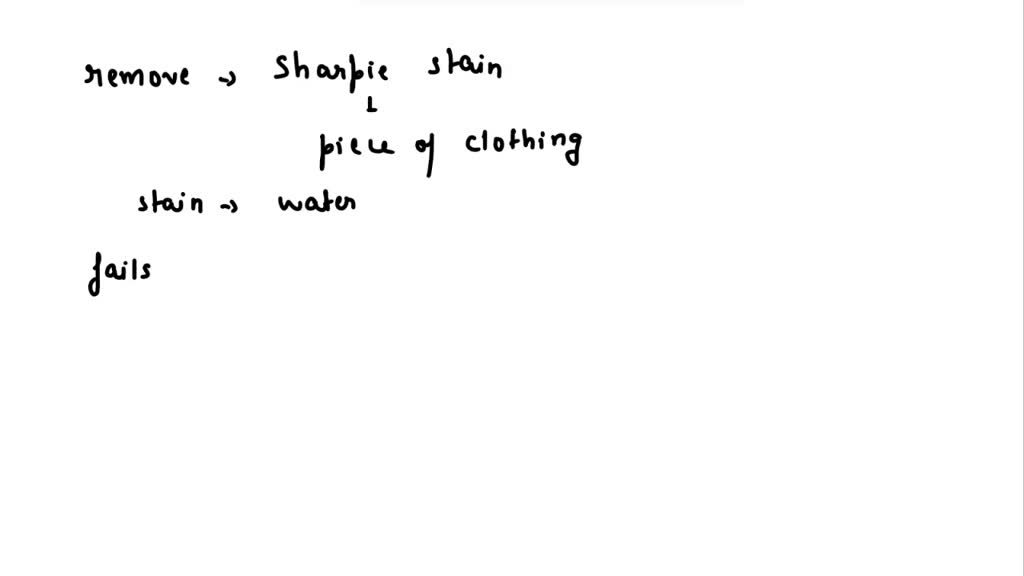 remove → Sharpie stain
↓
piece of clothing
stain → water
fails